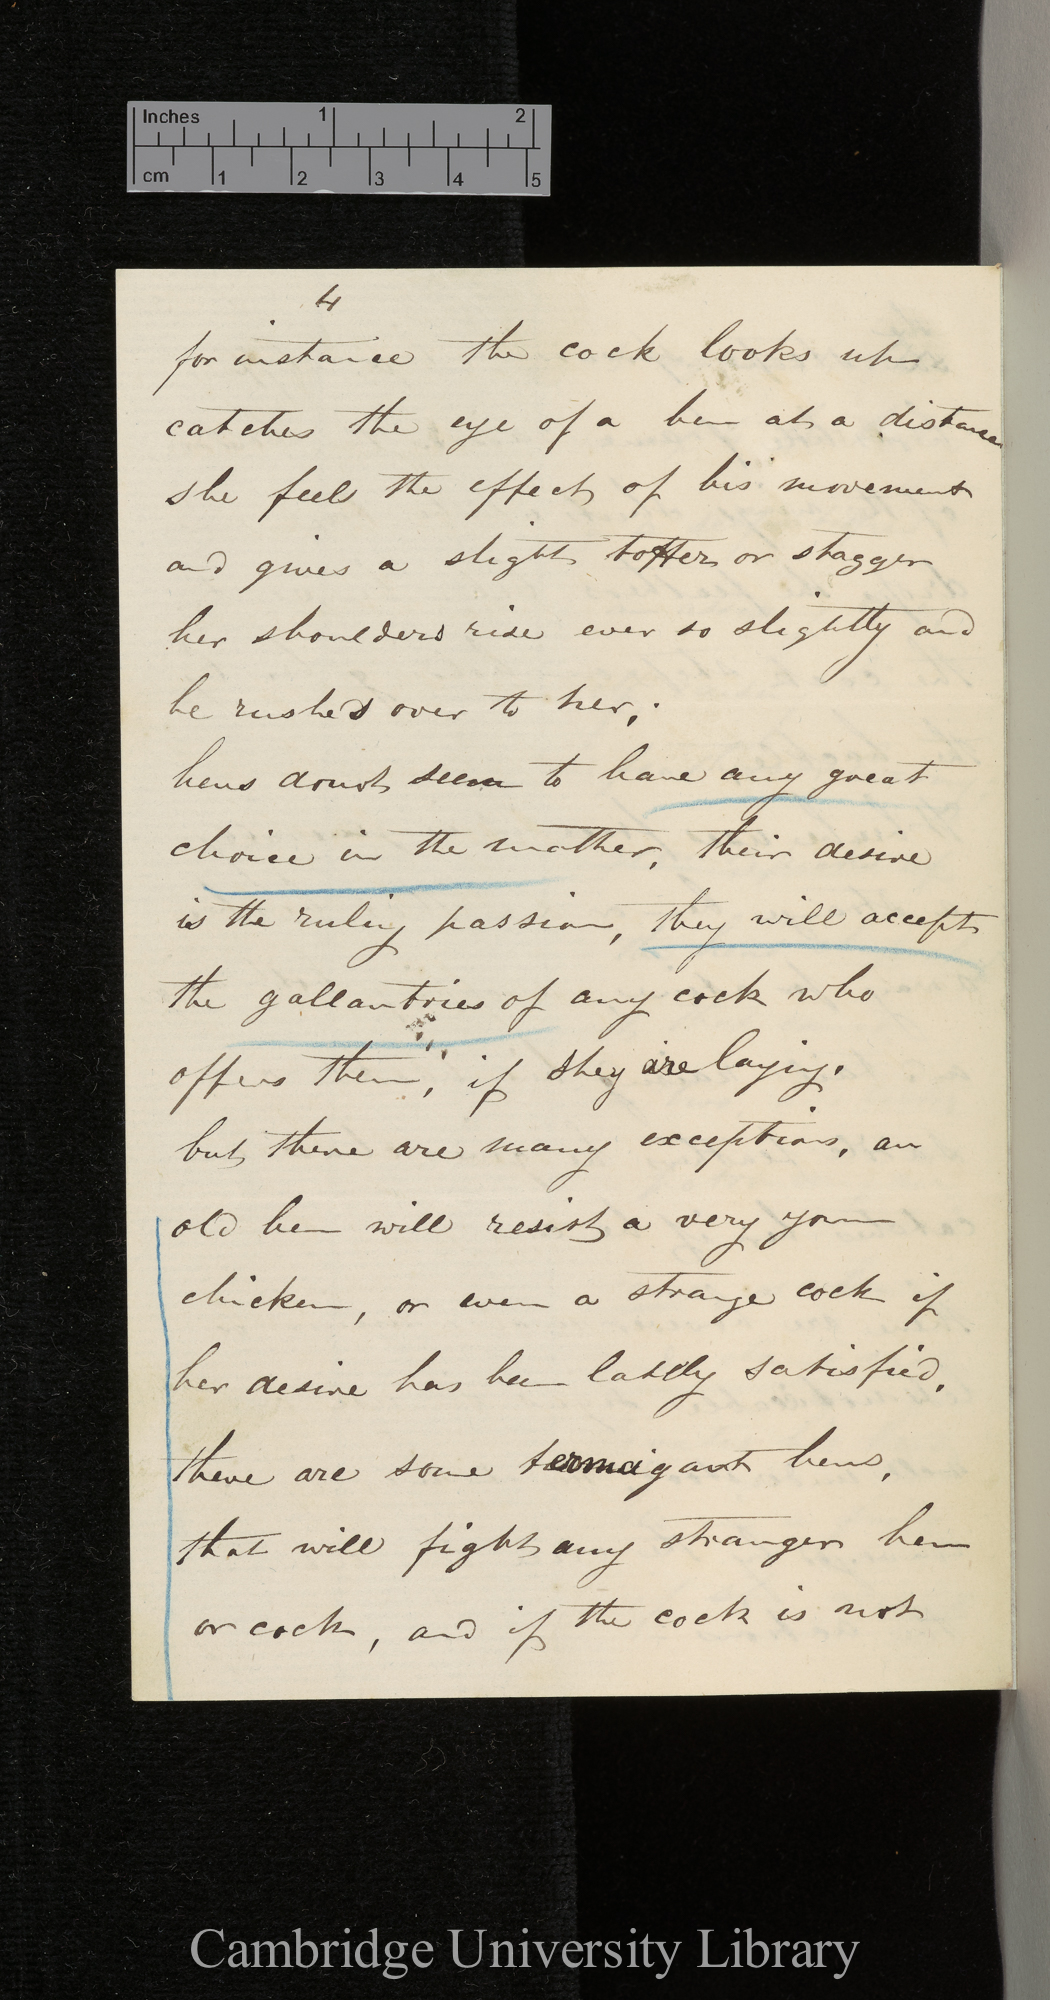 Inches 1 2
cm 1 2 3 4 5
4
for instance the cock looks up
catches the eye of a hen at a distance
she feels the effect of his movement
and gives a slight totter or stagger
her shoulders rise ever so slightly and
he rushes over to her,.
hens donot seem to have any great
choice in the matter, their desire
is the ruling passion, they will accept
the gallantries of any cock who
offers them, if they are laying.
but there are many exceptions, an
old hen will resist a very youn
chicken, or even a strange cock if
her desire has been lately satisfied,
there are some termagant hens,
that will fight any stranger hen
or cock, and if the cock is not
Cambridge University Library